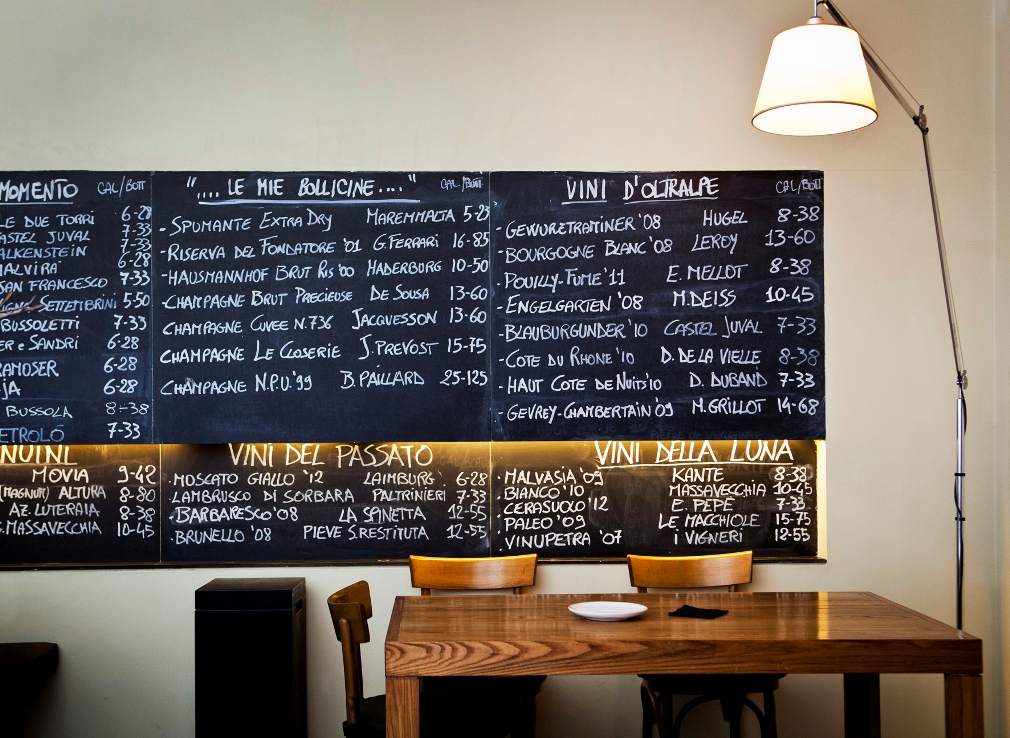 MOMENTO CAL/BOTT
LE DUE TORRI 6-28
CASTEL JUVAL 7-33
FALKENSTEIN 7-33
MALVIRA' 6-28
SAN FRANCESCO 7-33
SETTEMBRINI 5-50
BUSSOLETTI 7-33
ER e SANDRI 6-28
RAMOSER 6-28
JA 6-28
BUSSOLA 8-38
PETROLO 7-33
".... LE MIE BOLLICINE...." CAL./BOTT
- SPUMANTE EXTRA DRY MAREMMALTA 5-23
- RISERVA DEL FONDATORE '01 G.FERRARI 16-85
- HAUSMANNHOF BRUT RIS '00 HADERBURG 10-50
- CHAMPAGNE BRUT PRECIEUSE DE SOUSA 13-60
CHAMPAGNE CUVEE N.736 JACQUESSON 13-60
CHAMPAGNE LE CLOSERIE J.PREVOST 15-75
CHAMPAGNE N.P.U.'99 B.PAILLARD 25-125
VINI D'OLTRALPE CAL/BOTT
- GEWURZTRAMINER '08 HUGEL 8-38
- BOURGOGNE BLANC '08 LEROY 13-60
- POUILLY-FUME '11 E. MELLOT 8-38
- ENGELGARTEN '08 M.DEISS 10-45
- BLAUBURGUNDER '10 CASTEL JUVAL 7-33
- COTE DU RHONE '10 D. DE LA VIELLE 8-38
- HAUT COTE DE NUITS '10 D. DUBAND 7-33
- GEVREY-CHAMBERTAIN '09 M.GRILLOT 14-68
NUINI
MOVIA 9-42
(MAGNUM) ALTURA 8-80
AZ. LUTERAIA 8-38
MASSAVECCHIA 10-45
VINI DEL PASSATO
. MOSCATO GIALLO '12 LAIMBURG 6-28
. LAMBRUSCO DI SORBARA PALTRINIERI 7-33
. BARBARESCO '08 LA SPINETTA 12-55
. BRUNELLO '08 PIEVE S.RESTITUTA 12-55
VINI DELLA LUNA
. MALVASIA '09 KANTE 8-38
. BIANCO '10 MASSAVECCHIA 10-45
. CERASUOLO '12 E. PEPE 7-33
. PALEO '09 LE MACCHIOLE 15-75
. VINUPETRA '07 I VIGNERI 12-55